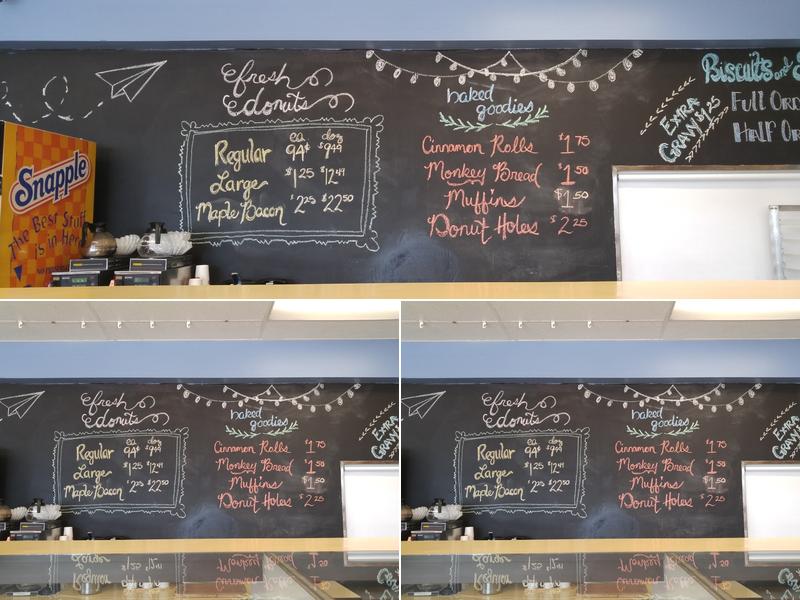 Fresh
donuts
ea doz
Regular 94¢ $9.49
Large $1.25 $12.49
Maple Bacon $2.25 $22.50
baked
goodies
Cinnamon Rolls $1.75
Monkey Bread $1.50
Muffins $1.50
Donut Holes $2.25
Biscuits and
EXTRA
GRAVY $1.25
Full
Half
Snapple
The Best Stuff
is in Here
Fresh
donuts
ea doz
Regular 94¢ $9.49
Large $1.25 $12.49
Maple Bacon $2.25 $22.50
baked
goodies
Cinnamon Rolls $1.75
Monkey Bread $1.50
Muffins $1.50
Donut Holes $2.25
EXTRA
GRAVY
Fresh
donuts
ea doz
Regular 94¢ $9.49
Large $1.25 $12.49
Maple Bacon $2.25 $22.50
baked
goodies
Cinnamon Rolls $1.75
Monkey Bread $1.50
Muffins $1.50
Donut Holes $2.25
EXTRA
GRAVY